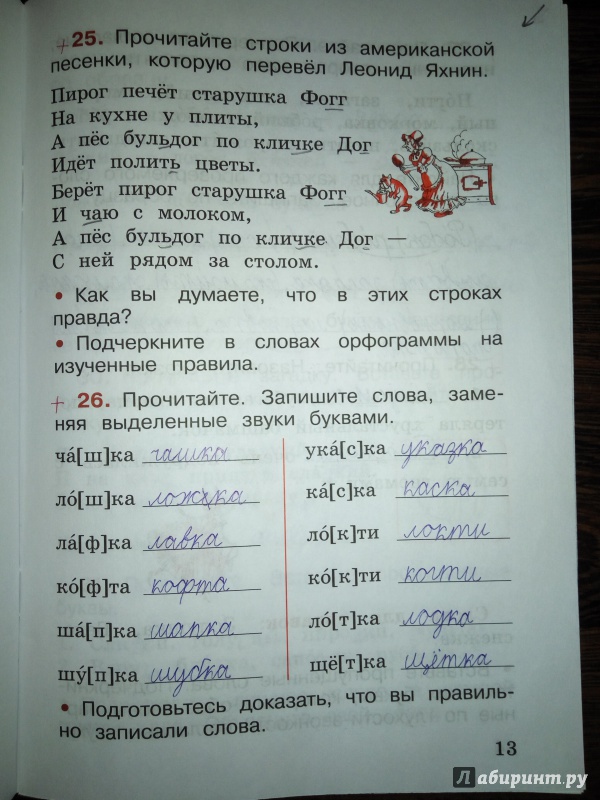 + 25. Прочитайте строки из американской
песенки, которую перевёл Леонид Яхнин.
Пирог печёт старушка Фогг
На кухне у плиты,
А пёс бульдог по кличке Дог
Идёт полить цветы.
Берёт пирог старушка Фогг
И чаю с молоком,
А пёс бульдог по кличке Дог —
С ней рядом за столом.
• Как вы думаете, что в этих строках
правда?
• Подчеркните в словах орфограммы на
изученные правила.
+ 26. Прочитайте. Запишите слова, заме-
няя выделенные звуки буквами.
ча́[ш]ка чашка
ло́[ш]ка ложка
ла́[ф]ка лавка
ко́[ф]та кофта
ша́[п]ка шапка
шу́[п]ка шубка
ука́[с]ка указка
ка́[с]ка каска
ло́[к]ти локти
ко́[к]ти когти
ло́[т]ка лодка
щё[т]ка щётка
• Подготовьтесь доказать, что вы правиль-
но записали слова.
13
Лабиринт.ру